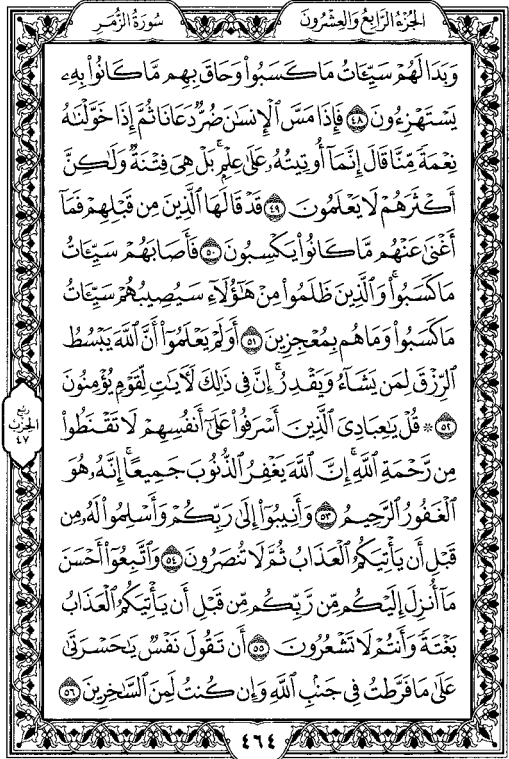 الجزء الرابع والعشرون
سورة الزمر
وَبَدَا لَهُمْ سَيِّئَاتُ مَا كَسَبُوا۟ وَحَاقَ بِهِم مَّا كَانُوا۟ بِهِۦ
يَسْتَهْزِءُونَ ٤٨ فَإِذَا مَسَّ ٱلْإِنسَـٰنَ ضُرٌّ دَعَانَا ثُمَّ إِذَا خَوَّلْنَـٰهُ
نِعْمَةً مِّنَّا قَالَ إِنَّمَآ أُوتِيتُهُۥ عَلَىٰ عِلْمٍۭ ۚ بَلْ هِىَ فِتْنَةٌ وَلَـٰكِنَّ
أَكْثَرَهُمْ لَا يَعْلَمُونَ ٤٩ قَدْ قَالَهَا ٱلَّذِينَ مِن قَبْلِهِمْ فَمَآ
أَغْنَىٰ عَنْهُم مَّا كَانُوا۟ يَكْسِبُونَ ٥٠ فَأَصَابَهُمْ سَيِّئَاتُ
مَا كَسَبُوا۟ ۚ وَٱلَّذِينَ ظَلَمُوا۟ مِنْ هَـٰٓؤُلَآءِ سَيُصِيبُهُمْ سَيِّئَاتُ
مَا كَسَبُوا۟ وَمَا هُم بِمُعْجِزِينَ ٥١ أَوَلَمْ يَعْلَمُوٓا۟ أَنَّ ٱللَّهَ يَبْسُطُ
ٱلرِّزْقَ لِمَن يَشَآءُ وَيَقْدِرُ ۚ إِنَّ فِى ذَٰلِكَ لَـَٔايَـٰتٍ لِّقَوْمٍ يُؤْمِنُونَ
٥٢ ۞ قُلْ يَـٰعِبَادِىَ ٱلَّذِينَ أَسْرَفُوا۟ عَلَىٰٓ أَنفُسِهِمْ لَا تَقْنَطُوا۟
مِن رَّحْمَةِ ٱللَّهِ ۚ إِنَّ ٱللَّهَ يَغْفِرُ ٱلذُّنُوبَ جَمِيعًا ۚ إِنَّهُۥ هُوَ
ٱلْغَفُورُ ٱلرَّحِيمُ ٥٣ وَأَنِيبُوٓا۟ إِلَىٰ رَبِّكُمْ وَأَسْلِمُوا۟ لَهُۥ مِن
قَبْلِ أَن يَأْتِيَكُمُ ٱلْعَذَابُ ثُمَّ لَا تُنصَرُونَ ٥٤ وَٱتَّبِعُوٓا۟ أَحْسَنَ
مَآ أُنزِلَ إِلَيْكُم مِّن رَّبِّكُم مِّن قَبْلِ أَن يَأْتِيَكُمُ ٱلْعَذَابُ
بَغْتَةً وَأَنتُمْ لَا تَشْعُرُونَ ٥٥ أَن تَقُولَ نَفْسٌ يَـٰحَسْرَتَىٰ
عَلَىٰ مَا فَرَّطتُ فِى جَنۢبِ ٱللَّهِ وَإِن كُنتُ لَمِنَ ٱلسَّـٰخِرِينَ ٥٦
ربع
الحزب
٤٧
٤٦٤